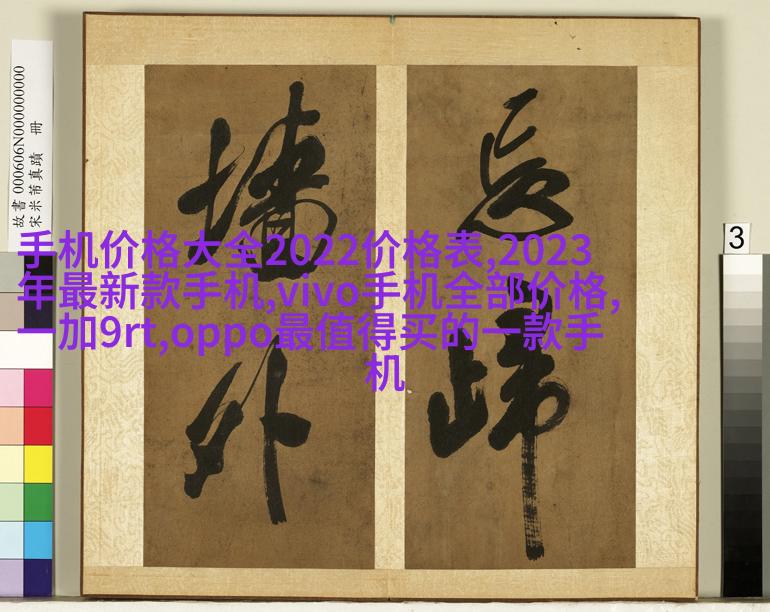 故書 000606N000000000
宋米芾真蹟 冊
手机价格大全2022价格表,2023
年最新款手机,vivo手机全部价格,
一加9rt,oppo最值得买的一款手
机
忘歸
墻外
3